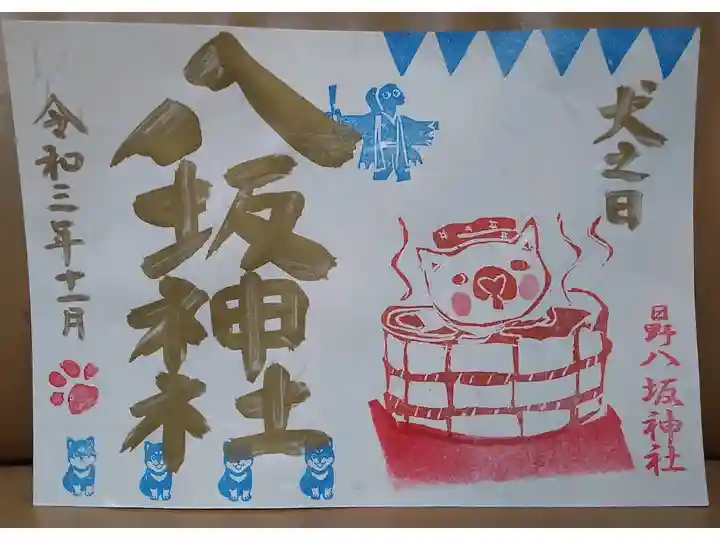 犬之日
日野八坂神社
八坂神社
令和三年十一月